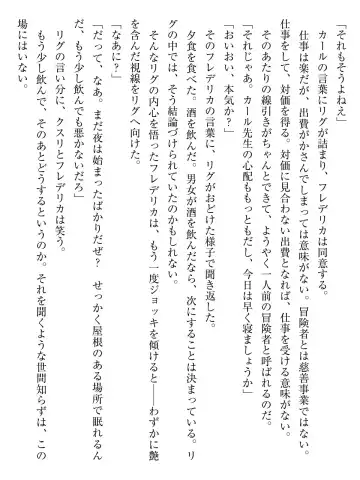 「それもそうよねえ」
カールの言葉にリグが詰まり、フレデリカは同意する。
仕事は楽だが、出費がかさんでしまっては意味がない。冒険者とは慈善事業ではない。
仕事をして、対価を得る。対価に見合わない出費となれば、仕事を受ける意味がない。
そのあたりの線引きがちゃんとできて、ようやく一人前の冒険者と呼ばれるのだ。
「それじゃあ。カール先生の心配ももっともだし、今日は早く寝ましょうか」
「おいおい、本気か？」
そのフレデリカの言葉に、リグがおどけた様子で聞き返した。
夕食を食べた。酒を飲んだ。男女が酒を飲んだなら、次にすることは決まっている。リ
グの中では、そう結論づけられていたのかもしれない。
そんなリグの内心を悟ったフレデリカは、もう一度ジョッキを傾けると――わずかに艶
を含んだ視線をリグへ向けた。
「なあに？」
「だって、なあ。まだ夜は始まったばかりだぜ？　せっかく屋根のある場所で眠れるん
だ、もう少し飲んでも悪かないだろ」
リグの言い分に、クスリとフレデリカは笑う。
もう少し飲んで、そのあとどうするというのか。それを聞くような世間知らずは、この
場にはいない。